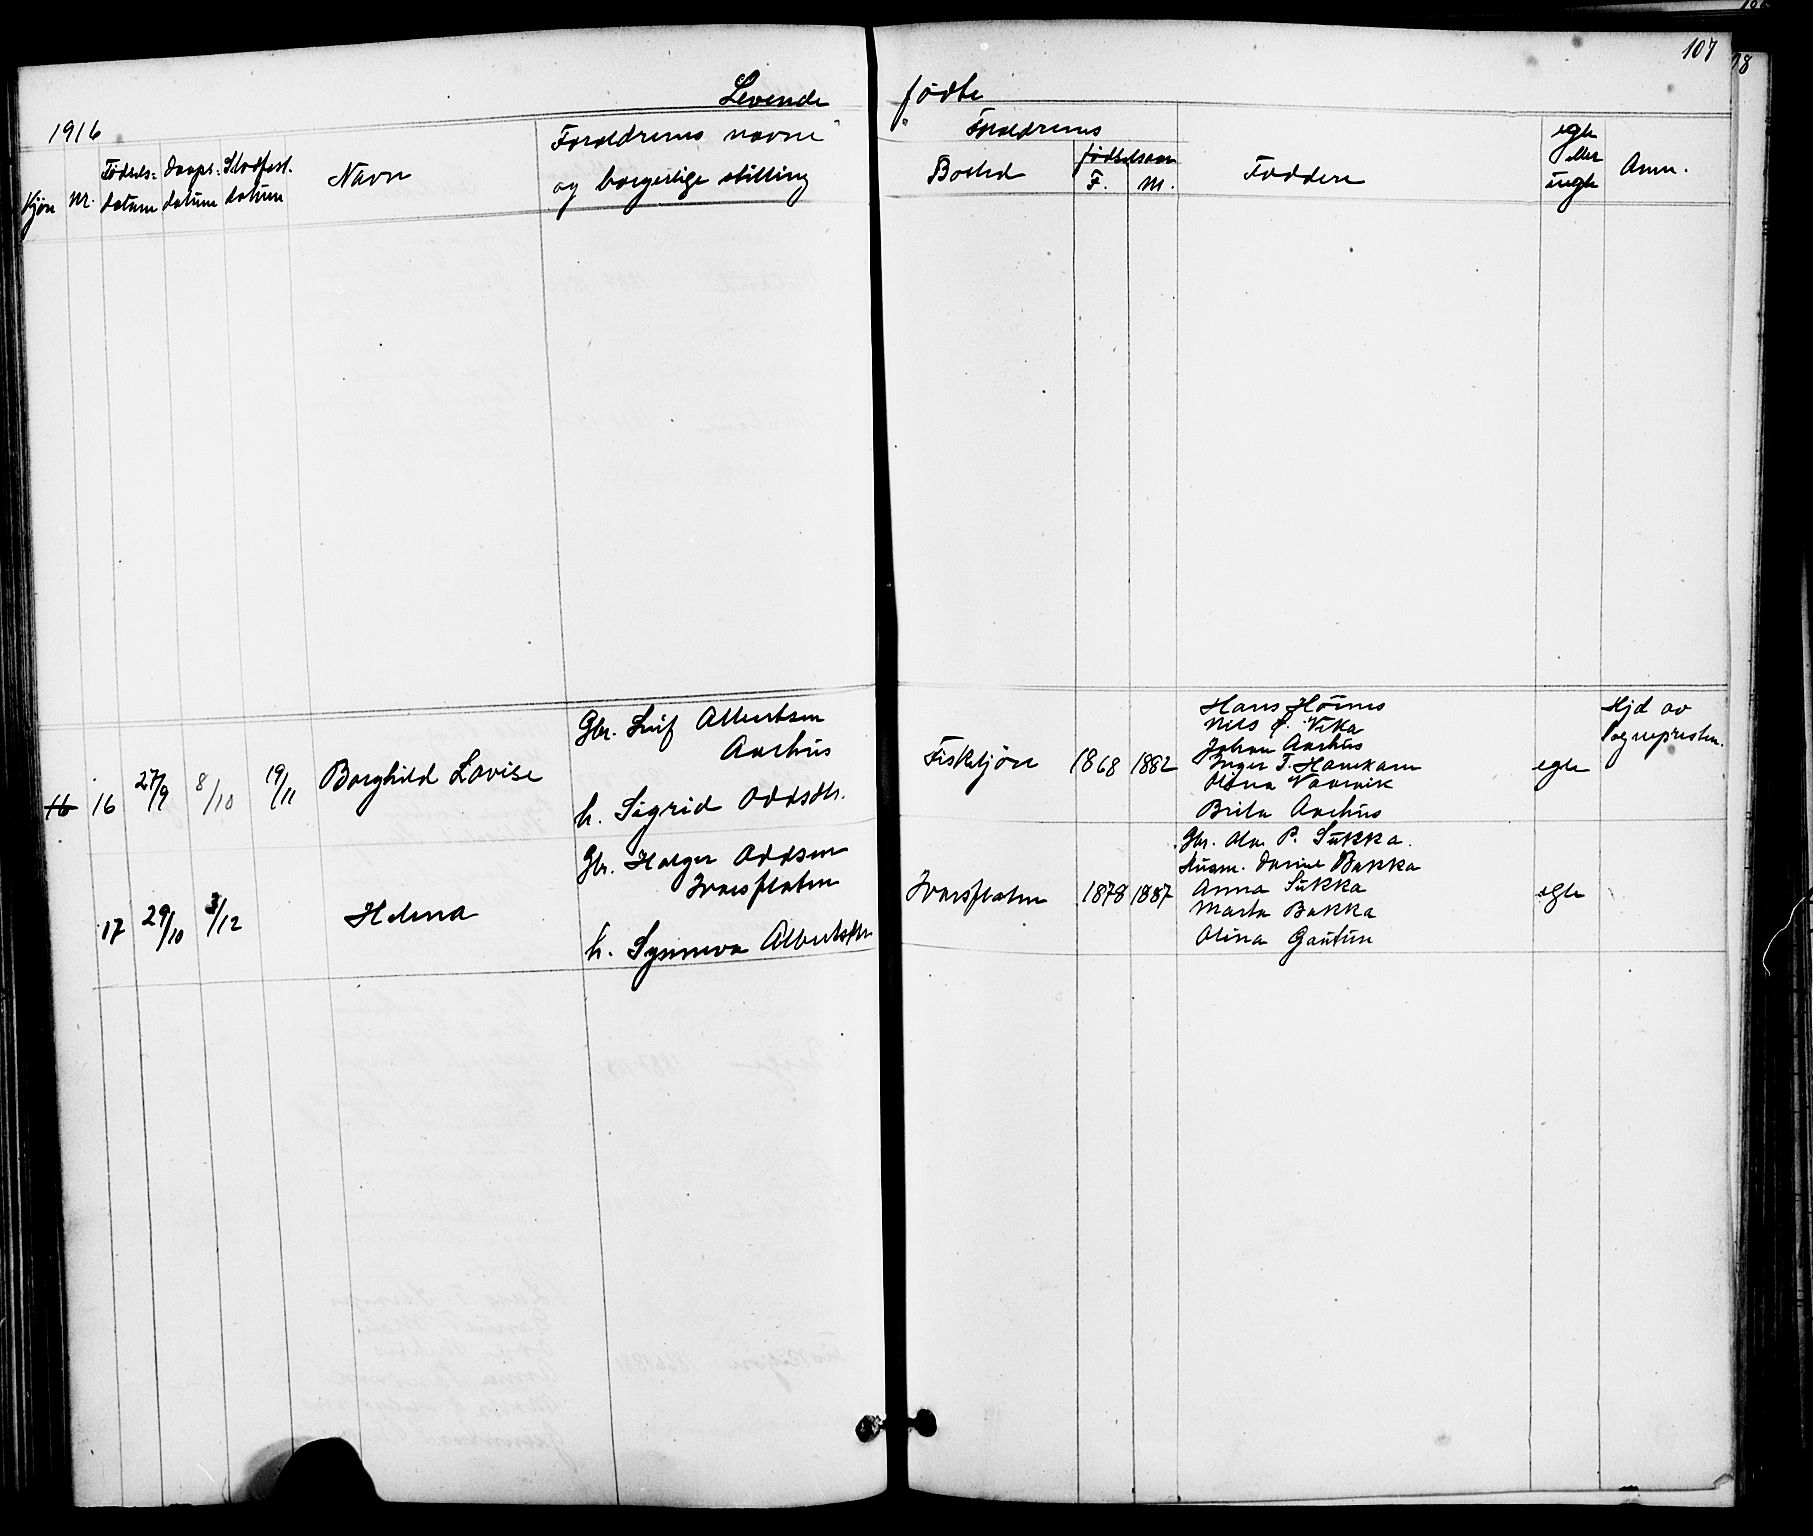 107
18
Levende
fødte
1916
Kjøn
Nr.
Fødsels-
datum
Daaps-
datum
Stadfest.
datum
Navn
Foræeldrenes navne
og borgerlige stilling
Forældrenes
Bosted
fødselsaar
F.
M.
Faddere
egte
eller
uegte
Anm.
16 16 27/9 8/10 19/11 Borghild Lovise
Gbr. Leif Albertsen
Aarhus
h. Sigrid Oddsdtr.
Fisketjøn 1868 1882
Hans Hörnes
Nils Vika
Johan Aarhus
Inger T. Hanekam
Olina Vaarvik
Brita Aarhus
egte
Hjd av
sognepresten.
17 29/10 3/12 Helena
Gbr. Holger Oddsen
Ivarsflaten
h. Synneva Albertsdtr
Ivarsflaten 1878 1887
Gbr. Ola P. Sükka.
Husm. Daniel Bakka
Anna Sükka
Marta Bakka
Olina Gautun
egte